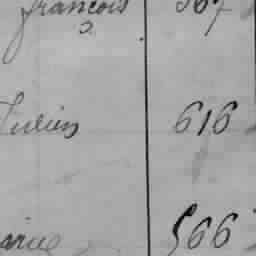 françois 567
Julien 616
Marie 566